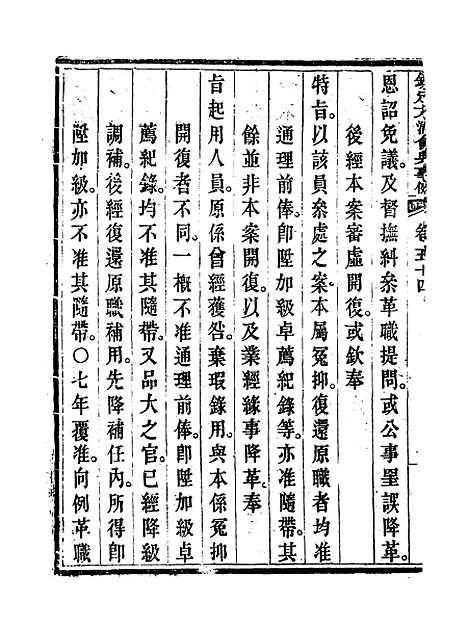 欽定大清會典事例 卷五十四
恩詔免議。及督撫糾叅革職提問。或公事罣誤降革。
後經本案審虛開復。或欽奉
特旨。以該員叅處之案。本屬冤抑。復還原職者。均准
通理前俸。卽陞加級卓薦紀錄等。亦准隨帶。其
餘並非本案開復。以及業經緣事降革。奉
旨起用人員。原係曾經獲咎。棄瑕錄用。與本係冤抑
開復者不同。一概不准通理前俸。卽陞加級卓
薦紀錄。均不准其隨帶。又品大之官。已經降級
調補。後經復還原職補用。先降補任內。所得卽
陞加級。亦不准其隨帶。〇七年覆准。向例革職